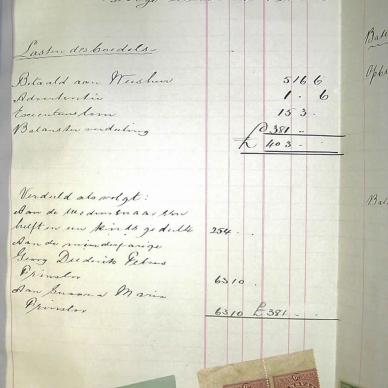 Lasten des boedels
Betaald aan Weeskuur 5 16 6
Advertentie 1 . 6
Executeursloon 15 3 .
Balans ter verdeling £ 381 . .
£ 403 . .
Verdeeld als volgt:
Aan de
helft en een kinds gedeelte 254 . .
Aan de minderjarige
Georg Diederik Petrus
Prinsloo 63 10 .
Aan Susanna Maria
Prinsloo 63 10 £ 381 . .
Bal